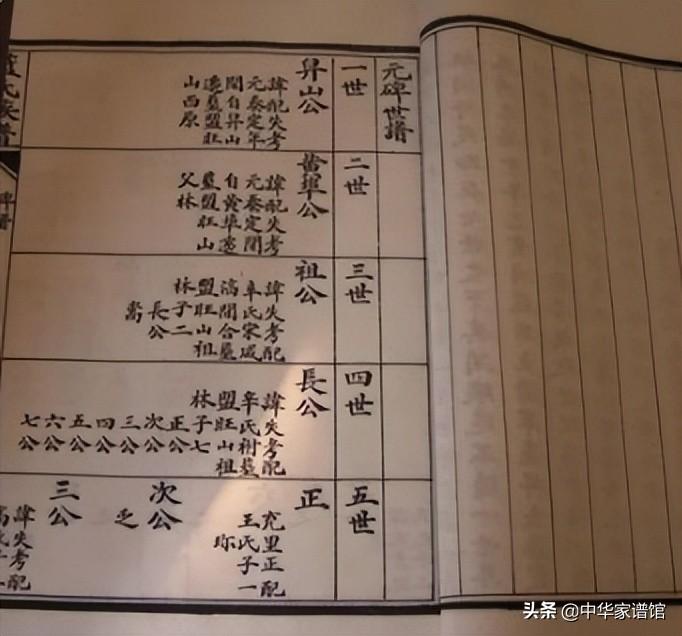 元碑世譜
一世
昇山公
諱配失考
元泰定年
間自昇山
遷墓盟旺
山西原
二世
黃埠公
諱配失考
元泰定間
自黃埠遷
墓盟旺山
父林
三世
祖公
諱失考配
氏宋咸
間合墓
盟旺山祖
林子二
長公
四世
長公
諱失考配
辛氏祔墓
盟旺山祖
林子七
正公
次公
三公
四公
五公
六公
七公
五世
正
充里正配
王氏子一
珎
次公
乏
三公
諱失考配
氏族譜
碑譜
头条 @中华家谱馆